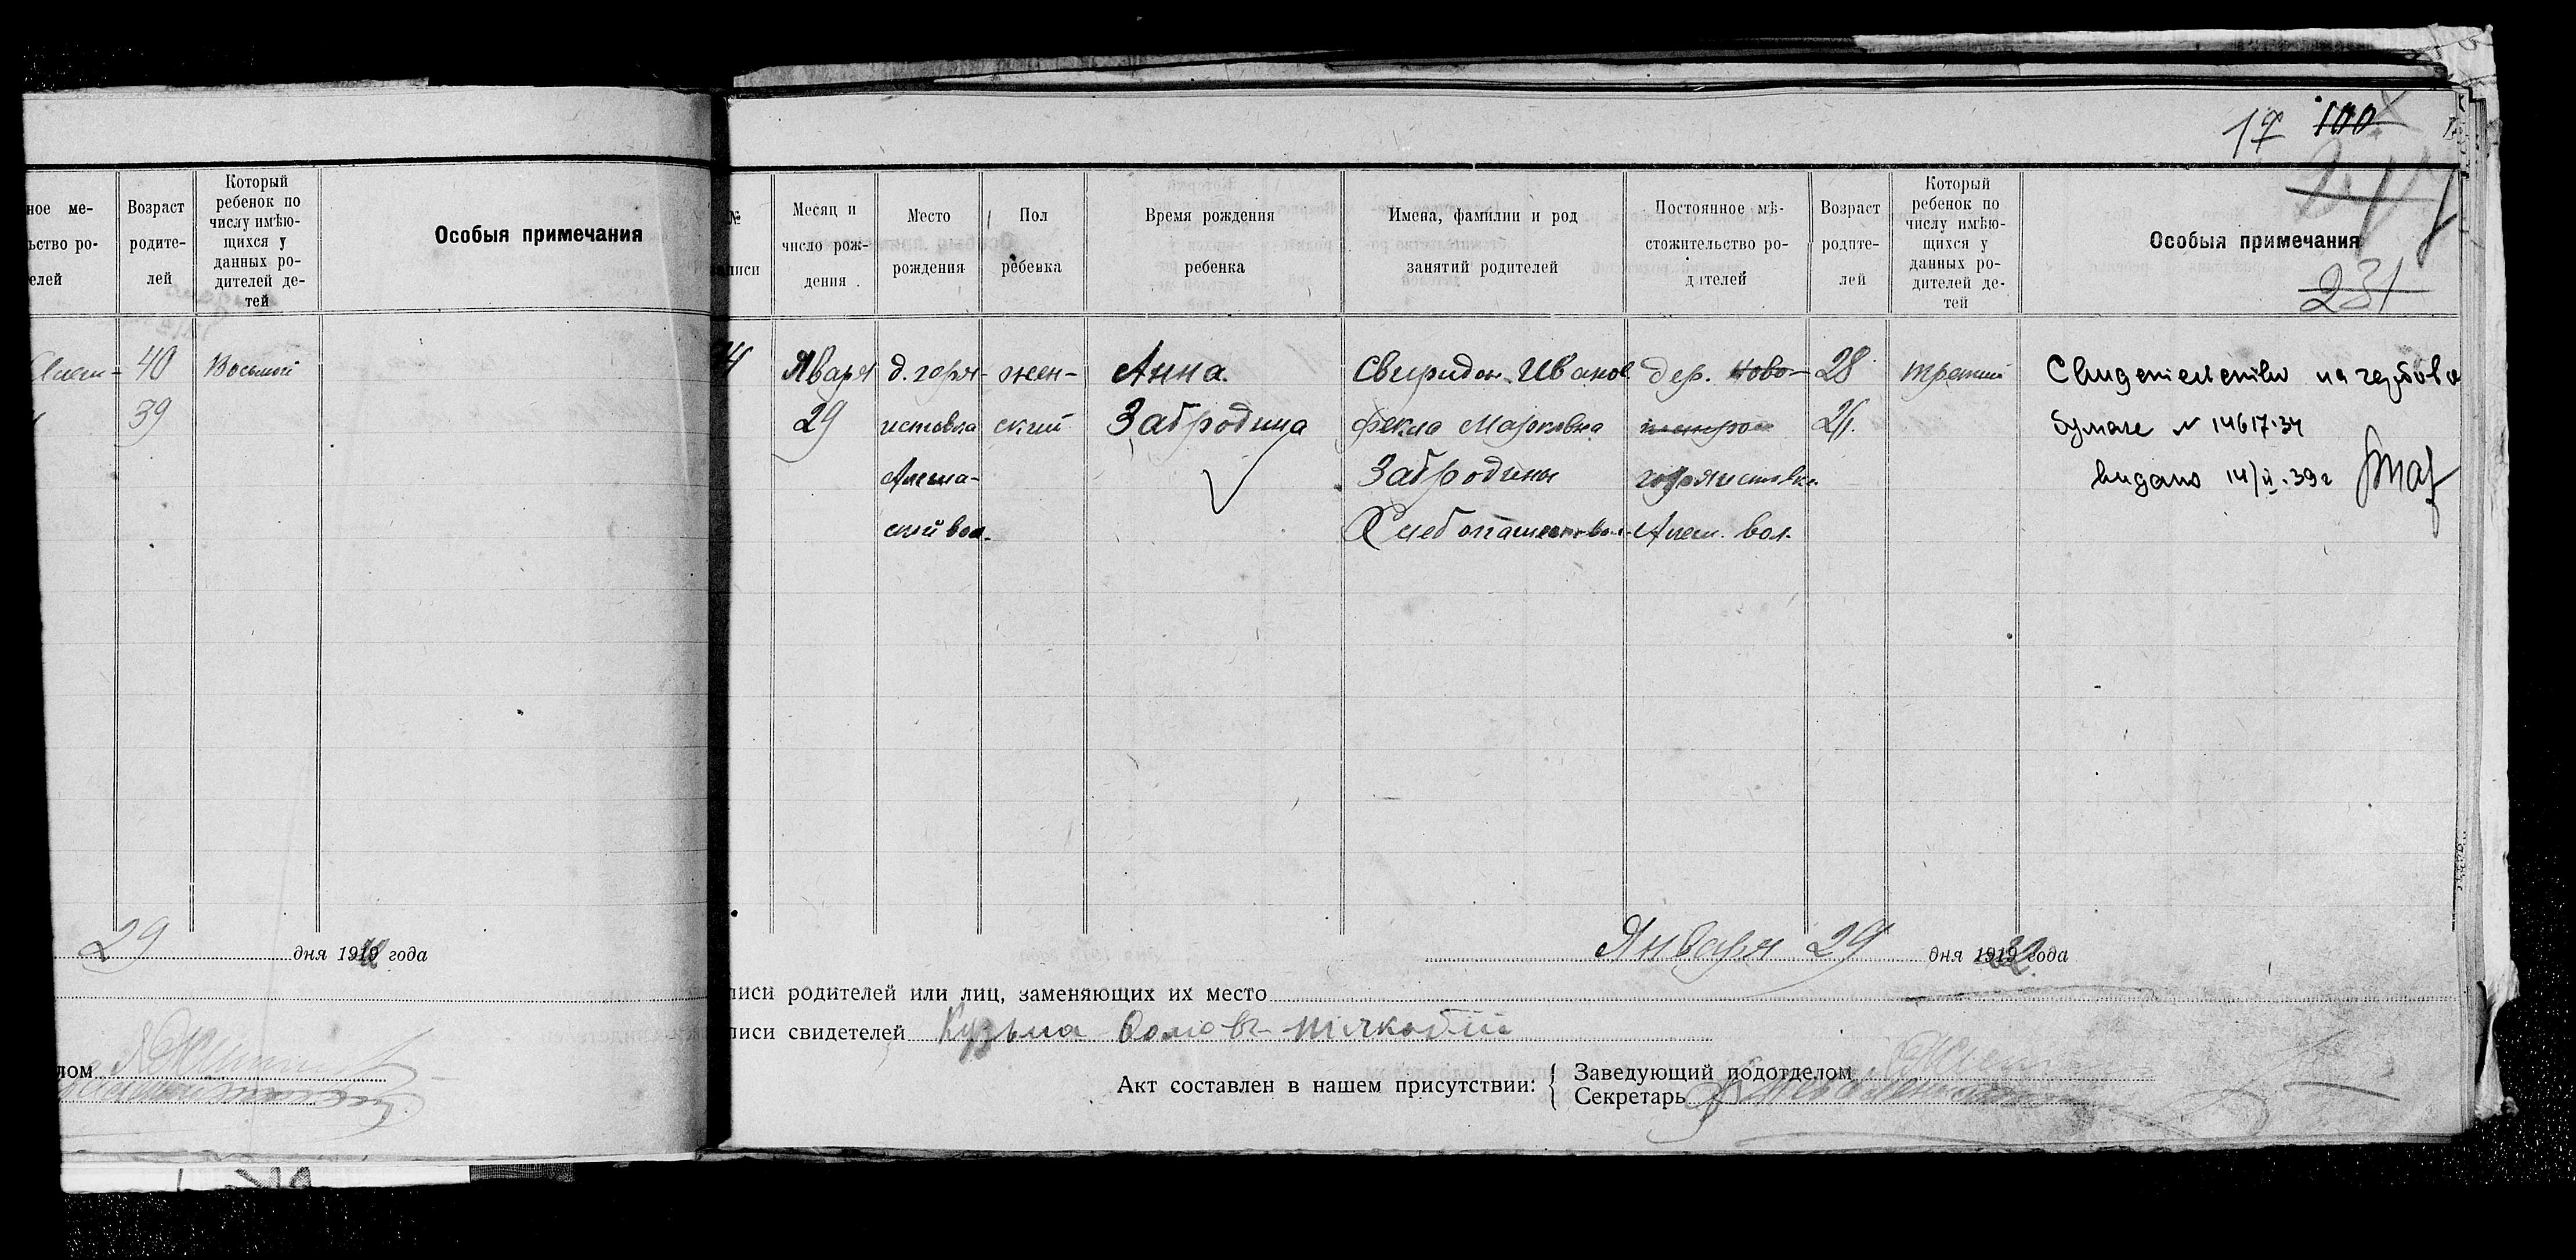 ное ме-
ьство ро-
елей
Возраст
родите-
лей
Который
ребенок по
числу имѣю-
щихся у
данных ро-
дителей де-
тей
Особыя примечания
40
Восьмой
39
29 дня 1919 года
лом
17 100
231
№
аписи
Месяц и
число рож-
дения
Место
рождения
Пол
ребенка
Время рождения
ребенка
Имена, фамилии и род
занятий родителей
Постоянное мѣ-
стожительство ро-
дителей
Возраст
родите-
лей
Который
ребенок по
числу имѣю-
щихся у
данных ро-
дителей де-
тей
Особыя примечания
Января
29
д. горя-
истовка
Алеша-
ский вол.
жен-
ский
Анна
Забродина
Свиридон Иванов
Фекла Марковна
Забродины
Хлебопашество
дер. Ново-
горяистовка
Алеш. вол.
28
26
третий
Свидетельство на гербово
бумаге № 1461734
видано 14/II-39г
Января 29 дня 1919 года
писи родителей или лиц, заменяющих их место
писи свидетелей Кузьма
Акт составлен в нашем присутствии:
Заведующий подотделом
Секретарь